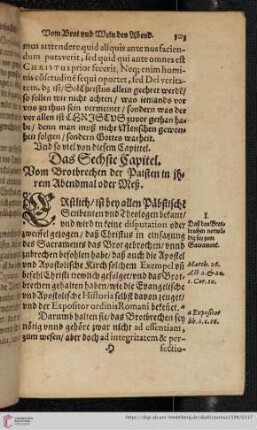 Vom Brot vnd Wein deu Abend. 303
mus attendere quid aliquis ante nos facien-
dum putaverit, sed quid qui ante omnes est
CHRISTUS prior fecerit, Neq; enim homi-
nis cōsetudinē sequi oportet, sed Dei verita-
tem. dz ist/ Sol Christus allein gechret werdē/
so sollen wir nicht achten/ was iemands vor
vns zu thun sein vermeinet/ sondern was der
vor allen ist CHRISTVS zuvor gethan ha-
be/ denn man muß nicht Menschen gewon-
heit folgen/ sondern Gottes warheit.
Vnd so viel von diesem Capitel.
Das Sechste Capitel.
Vom Brotbrechen der Papisten in ih-
rem Abendmal oder Meß.
ERstlich/ ist bey allen Päbstische
Scribenten vnd Theologen bekant/
vnd wird in keine disputation oder
zweifel gezogen/ daß Christus in einsatzung
des Sacraments das Brot gebrochen/ vnnd
zubrechen befohlen habe/ daß auch die Apostel
vnd Apostolische Kirch solchem Exempel vñ
befehl Christi trewlich gefolget/ vnd das Brot-
brechen gehalten haben/ wie die Evangelische
vnd Apostolische Historia selbst davon zeuget/
vnd der Expositor ordinis Romani bekennet. a
Darumb halten sie/ das Brotbrechen sey
nötig vnnd gehöre zwar nicht ad essentiam,
zum wesen/ aber doch ad integritatem & per-
fectio-
I.
Daß das Brot-
brechen notwē-
dig sey zum
Sacrament.
Matth. 26.
Act. 2. & 20.
1. Cor. 10.
a Expositor